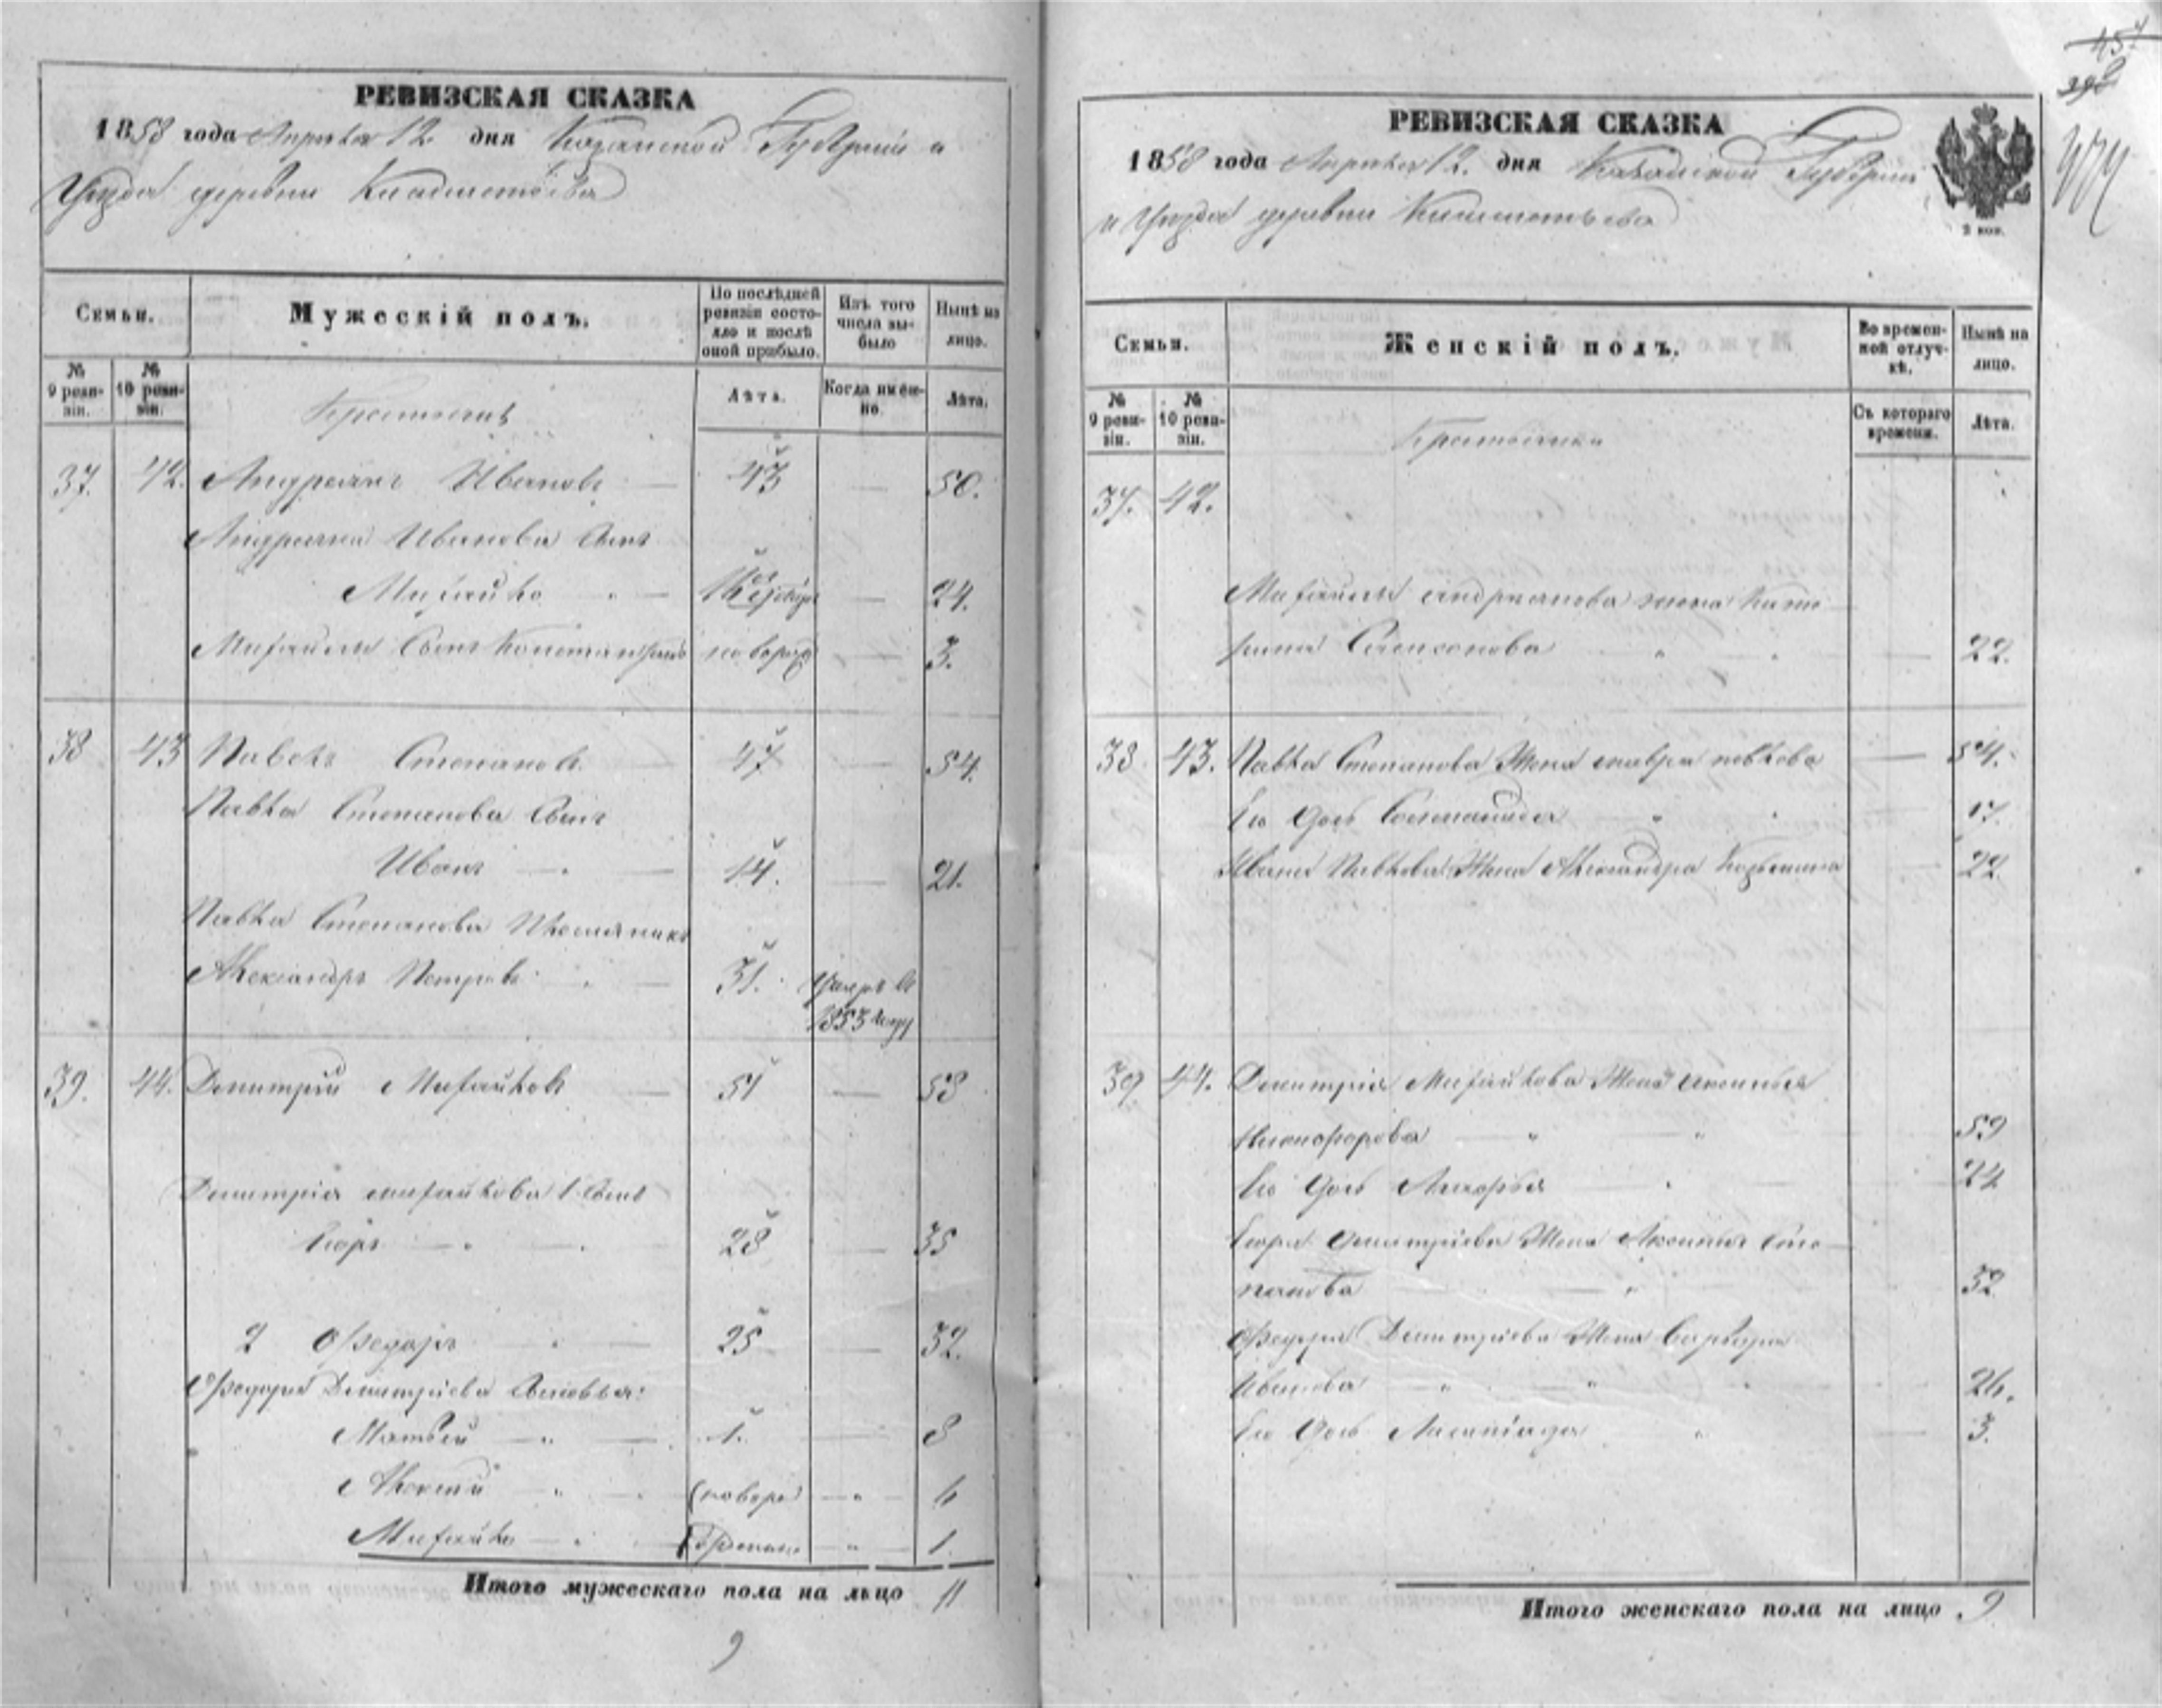 РЕВИЗСКАЯ СКАЗКА
1858 года Апреля 12 дня Казанской Губерніи и
Уезда деревни
Семьи.
Мужескій полъ.
По послѣдней ревизіи состояло и послѣ оной прибыло.
Изъ того числа выбыло
Нынѣ на лицо.
№ 9 ревизіи.
№ 10 ревизіи.
Лѣта.
Когда именно.
Лѣта.
Крестьянъ
37. 42. Андреянъ Ивановъ — 43 — 50.
Андреяна Иванова Сынъ
Михайло — — 24.
Михайлы Сынъ Константинъ новорож — 3.
38 43 Павелъ Степановъ 47 — 54.
Павла Степанова Сынъ
Иванъ — 14. — 21.
Павла Степанова Племяникъ
Александръ Петровъ — 31. Умеръ въ
1853 году
39. 44. Дмитрій Михайловъ — 51 — 58
Дмитрія Михайлова 1 Сынъ
Егоръ — 28 — 35
2 Федоръ — 25 — 32.
Федора Дмитріева Сыновья:
Матвей — 1. — 8
Алексей — новоро — 6
Михайло — — 1.
Итого мужескаго пола на льцо 11
9
45
398
474
РЕВИЗСКАЯ СКАЗКА
1858 года Апреля 12. дня Казанской Губерніи
и Уезда деревни
2 коп.
Семьи.
Женскій полъ.
Во временной отлучкѣ.
Нынѣ на лицо.
№ 9 ревизіи.
№ 10 ревизіи.
Съ котораго времени.
Лѣта.
Крестьянки
37. 42.
Михайлы Андреянова жена Кате
рина — 22.
38 43. Павла Степанова Жена Мавра Павлова — 54.
Ею дочь — 17.
Ивана Павлова Жена Александра Козьмина — 22
39 44. Дмитрія Михайлова Жена
Никифорова — 59
Ею дочь — 24
Егора Дмитріева Жена Аксинья Сте
панова — 32
Федора Дмитріева Жена Варвара
Иванова — 26.
Ею дочь — 3.
Итого женскаго пола на лицо . 9